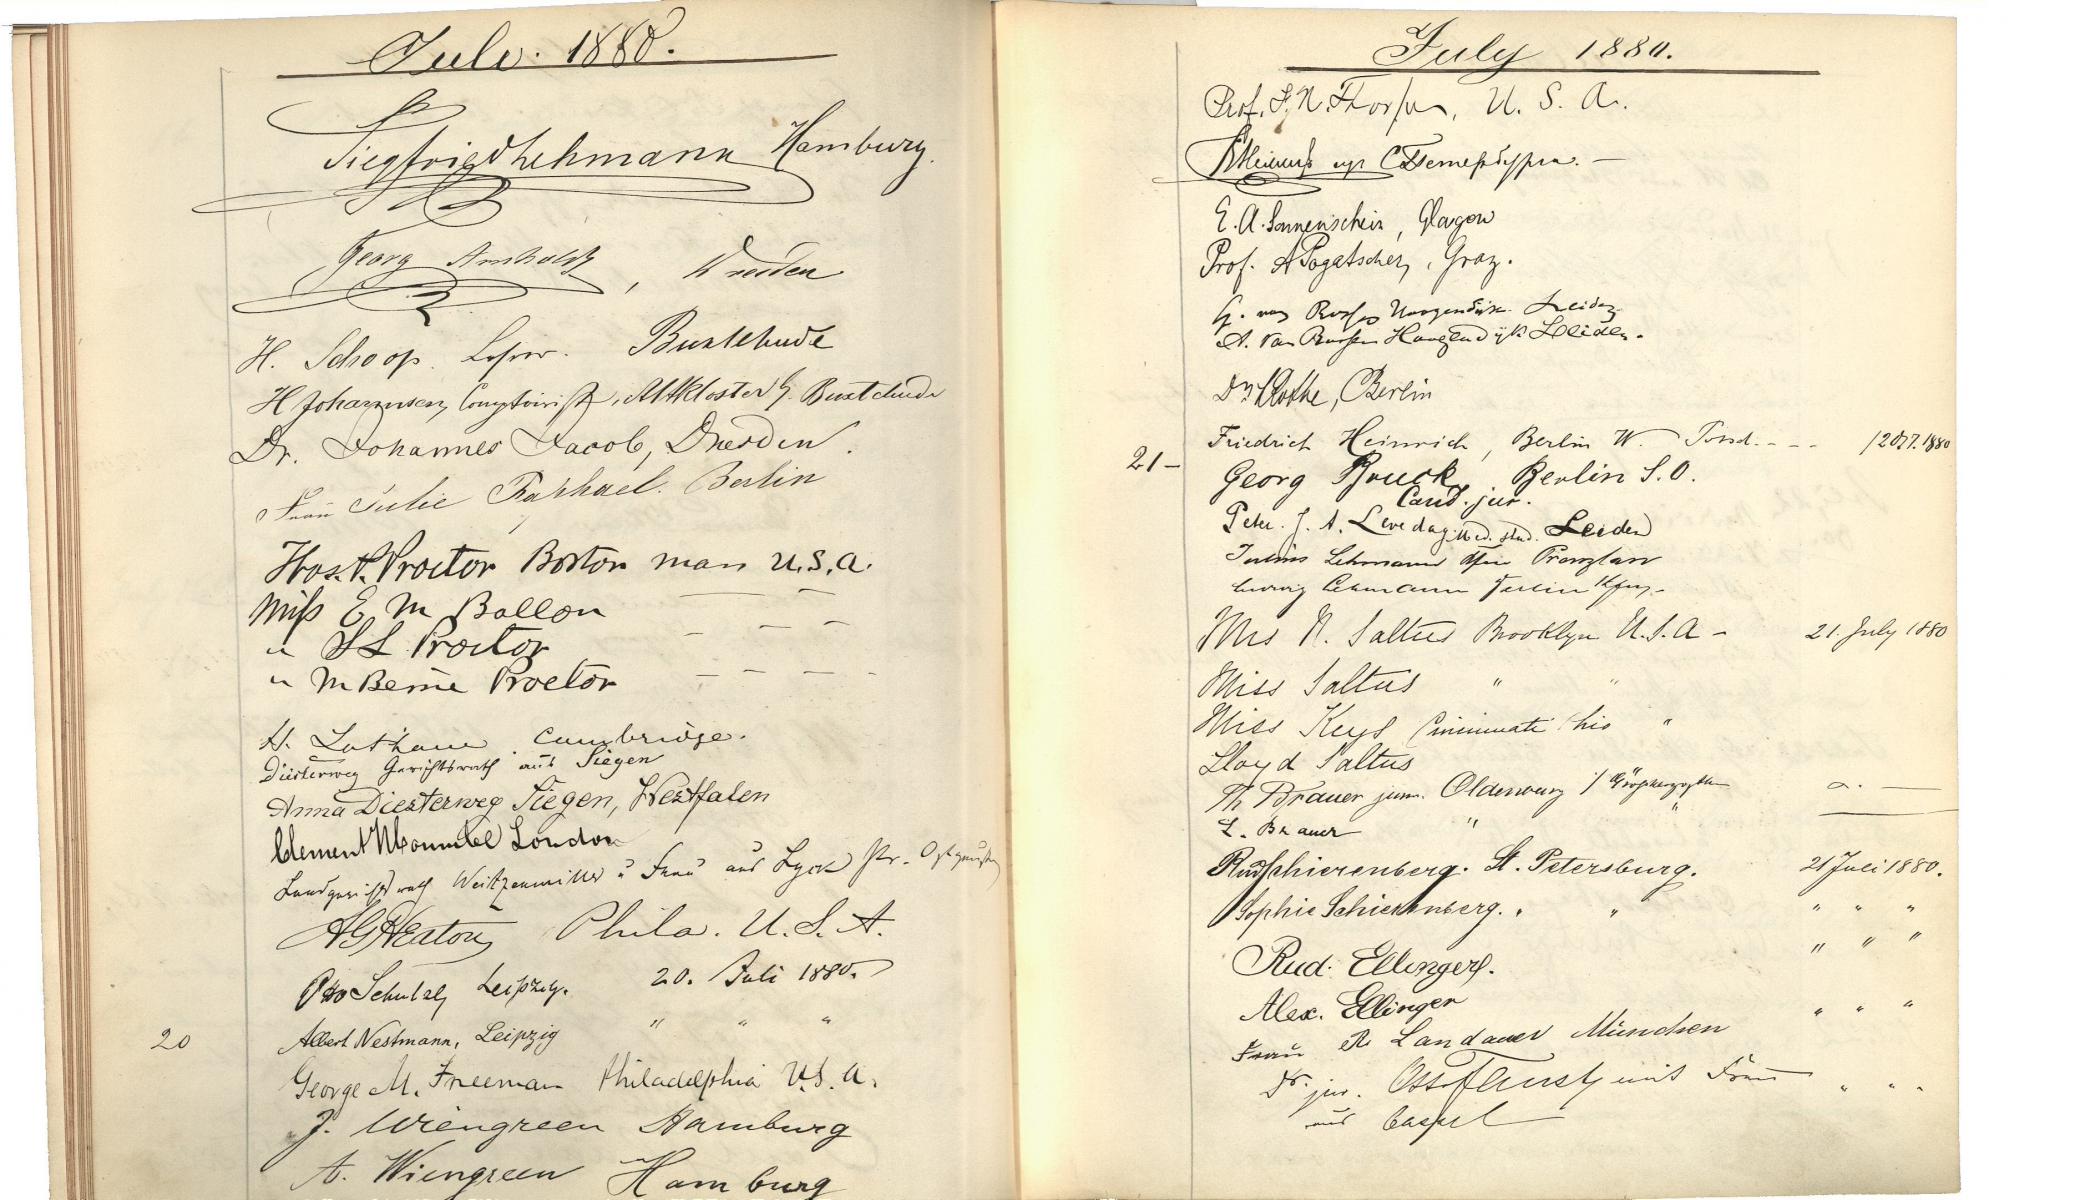 Juli. 1880.
Siegfried Lehmann Hamburg.
Georg Arnhold, Dresden
H. Schoop. Buxtehude
H Johannsen, Comptoirist, Altkloster b. Buxtehude
Dr. Johannes Jacob, Dresden.
Frau Julie Raphael. Berlin
Thos. P. Proctor Boston Mass U.S.A.
Miss E M Ballou — —
" S L Proctor — — —
" M Bernie Proctor — — — —
H. Latham. Cambridge.
Diesterweg Gerichtsrath aus Siegen
Anna Diesterweg Siegen, Westfalen
Clement London
Landgerichtsrath u Frau aus Lyck
A G Heaton Phila. U.S.A.
Otto Schulze, Leipzig. 20. Juli 1880.
20 Albert Nestmann, Leipzig " " "
George M. Freeman Philadelphia U.S.A.
J. Wiengreen Hamburg
A. Wiengreen Hamburg
July 1880.
Prof. U.S.A.
E. A. Sonnenschein, Glasgow
Prof. A Pogatscher, Graz.
Leiden
A. van Leiden.
Dr Berlin
Friedrich Heinrich, Berlin W.
21 — Georg Bruck Berlin S.O.
Cand. jur.
Peter J. A. Levedag Med. stud. Leiden
Julius Lehmann Prenzlau
Ludwig Lehmann Berlin
Mrs N. Saltus Brooklyn U.S.A — 21. July 1880
Miss Saltus " "
Miss Keys Cincinnati Ohio "
Lloyd Saltus
Th Brauer jun. Oldenburg
L. Brauer " "
Rud Schierenberg. St. Petersburg. 21 Juli 1880.
Sophie Schierenberg. " " " " "
Rud. Ellinger. " " "
Alex. Ellinger " " "
Frau R. Landauer München
Dr. jur. Otto mit Frau " " "
aus Cassel